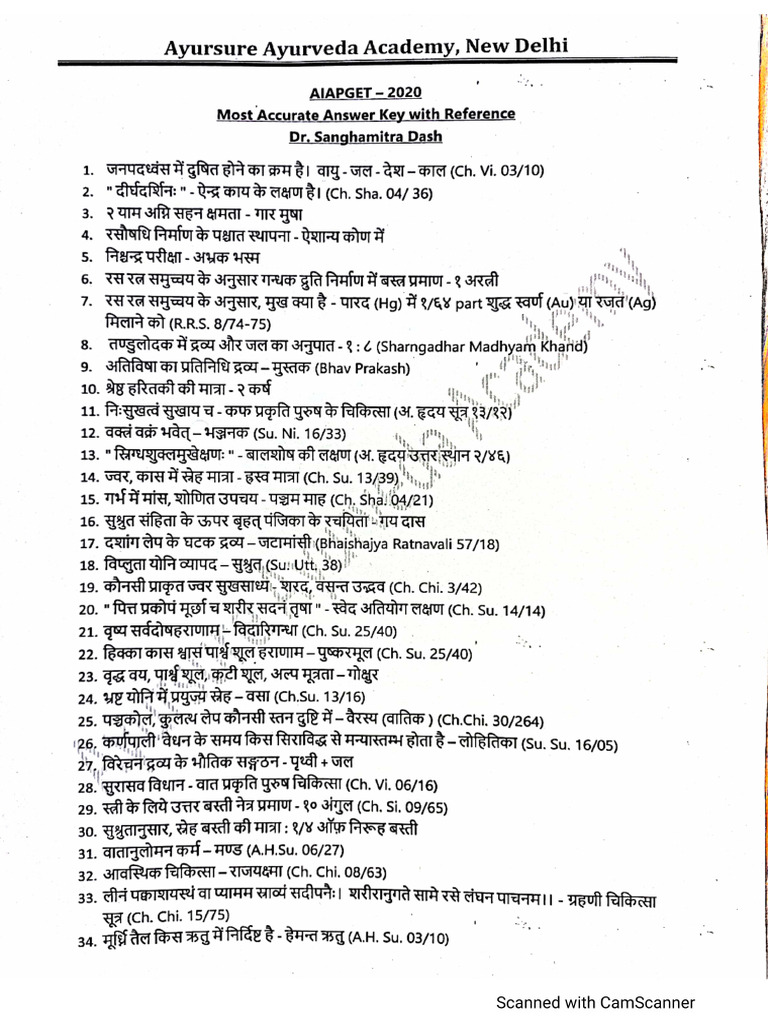 Ayursure Ayurveda Academy, New Delhi
AIAPGET – 2020
Most Accurate Answer Key with Reference
Dr. Sanghamitra Dash
1. जनपदध्वंस में दुषित होने का क्रम है। वायु - जल - देश – काल (Ch. Vi. 03/10)
2. " दीर्घदर्शिनः " - ऐन्द्र काय के लक्षण है। (Ch. Sha. 04/ 36)
3. २ याम अग्नि सहन क्षमता - गार मुषा
4. रसौषधि निर्माण के पश्चात स्थापना - ऐशान्य कोण में
5. निश्चन्द्र परीक्षा - अभ्रक भस्म
6. रस रत्न समुच्चय के अनुसार गन्धक द्रुति निर्माण में बस्त्र प्रमाण - १ अरत्नी
7. रस रत्न समुच्चय के अनुसार, मुख क्या है - पारद (Hg) में १/६४ part शुद्ध स्वर्ण (Au) या रजत (Ag)
मिलाने को (R.R.S. 8/74-75)
8. तण्डुलोदक में द्रव्य और जल का अनुपात - १ : ८ (Sharngadhar Madhyam Khand)
9. अतिविषा का प्रतिनिधि द्रव्य – मुस्तक (Bhav Prakash)
10. श्रेष्ठ हरितकी की मात्रा - २ कर्ष
11. निःसुखत्वं सुखाय च - कफ प्रकृति पुरुष के चिकित्सा (अ. हृदय सूत्र १३/१२)
12. वक्त्रं वक्रं भवेत् – भञ्जनक (Su. Ni. 16/33)
13. " स्निग्धशुक्लमुखेक्षणः" - बालशोष की लक्षण (अ. हृदय उत्तर स्थान २/४६)
14. ज्वर, कास में स्नेह मात्रा - ह्रस्व मात्रा (Ch. Su. 13/39)
15. गर्भ में मांस, शोणित उपचय - पञ्चम माह (Ch. Sha. 04/21)
16. सुश्रुत संहिता के ऊपर बृहत् पंजिका के रचयिता - गय दास
17. दशांग लेप के घटक द्रव्य – जटामांसी (Bhaishajya Ratnavali 57/18)
18. विप्लुता योनि व्यापद – सुश्रुत (Su. Utt. 38)
19. कौनसी प्राकृत ज्वर सुखसाध्य - शरद, वसन्त उद्भव (Ch. Chi. 3/42)
20. " पित्त प्रकोपं मूर्छा च शरीर सदनं तृषा " - स्वेद अतियोग लक्षण (Ch. Su. 14/14)
21. वृष्य सर्वदोषहराणाम् – विदारिगन्धा (Ch. Su. 25/40)
22. हिक्का कास श्वास पार्श्व शूल हराणाम – पुष्करमूल (Ch. Su. 25/40)
23. वृद्ध वय, पार्श्व शूल, कटी शूल, अल्प मूत्रता – गोक्षुर
24. भ्रष्ट योनि में प्रयुज्य स्नेह – वसा (Ch.Su. 13/16)
25. पञ्चकोल, कुलत्थ लेप कौनसी स्तन दुष्टि में – वैरस्य (वातिक ) (Ch.Chi. 30/264)
26. कर्णपाली वेधन के समय किस सिराविद्ध से मन्यास्तम्भ होता है – लोहितिका (Su. Su. 16/05)
27. विरेचन द्रव्य के भौतिक सङ्गठन - पृथ्वी + जल
28. सुरासव विधान - वात प्रकृति पुरुष चिकित्सा (Ch. Vi. 06/16)
29. स्त्री के लिये उत्तर बस्ती नेत्र प्रमाण - १० अंगुल (Ch. Si. 09/65)
30. सुश्रुतानुसार, स्नेह बस्ती की मात्रा : १/४ ऑफ़ निरूह बस्ती
31. वातानुलोमन कर्म – मण्ड (A.H.Su. 06/27)
32. आवस्थिक चिकित्सा – राजयक्ष्मा (Ch. Chi. 08/63)
33. लीनं पक्वाशयस्थं वा प्यामम स्राव्यं सदीपनैः। शरीरानुगते सामे रसे लंघन पाचनम।। - ग्रहणी चिकित्सा
सूत्र (Ch. Chi. 15/75)
34. मूर्ध्नि तैल किस ऋतु में निर्दिष्ट है - हेमन्त ऋतु (A.H. Su. 03/10)
Scanned with CamScanner